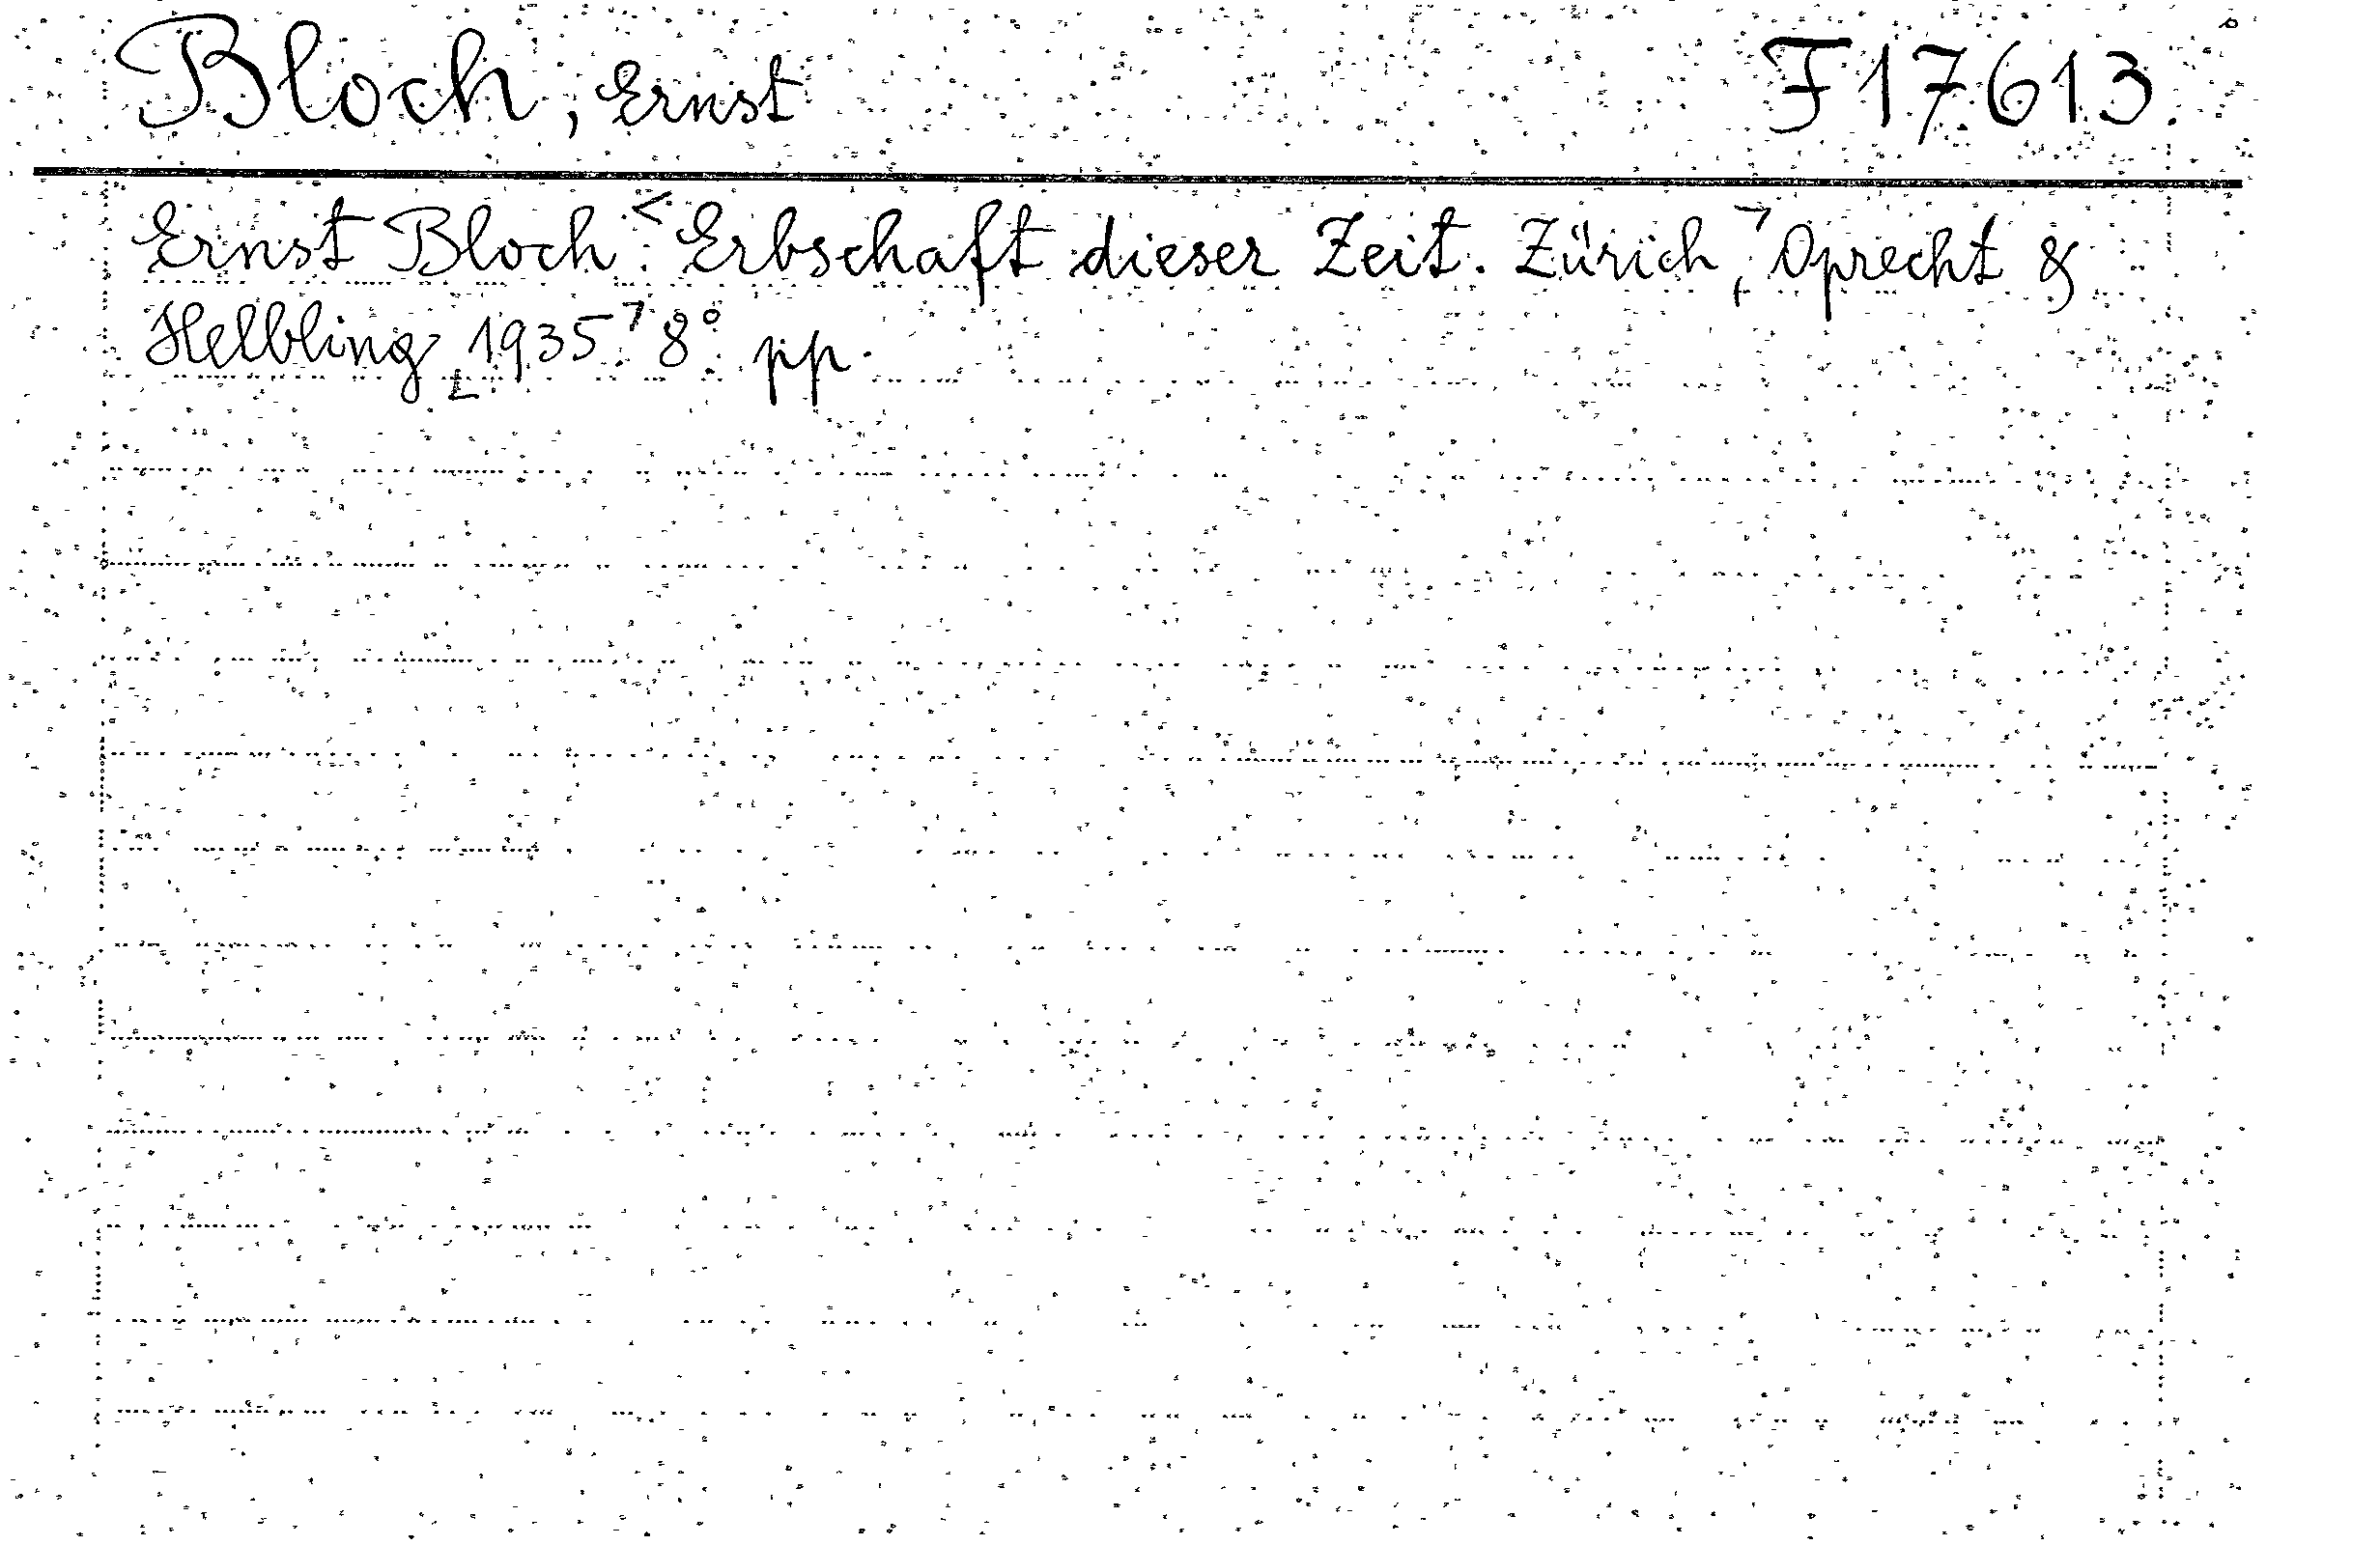 Bloch, Ernst F17613
Ernst Bloch: Erbschaft dieser Zeit. Zürich, Oprecht &
Helbling 1935. 8° pp.